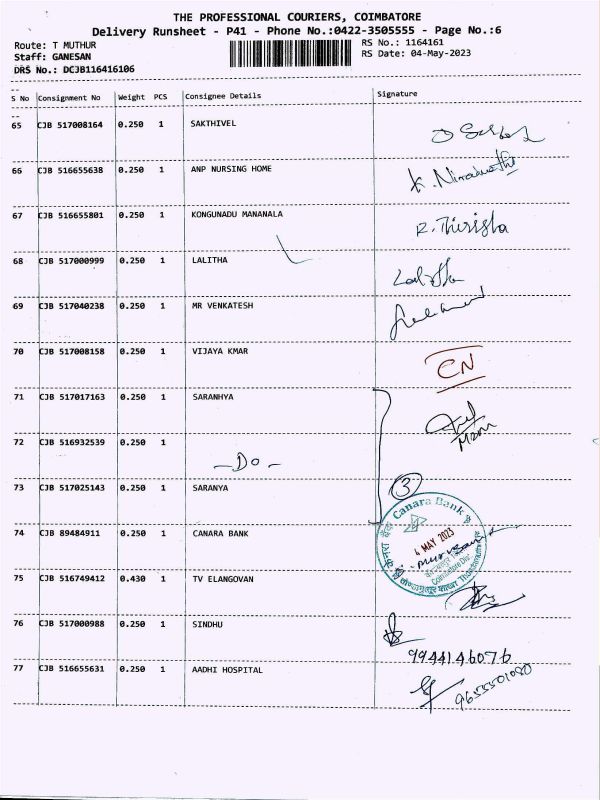 THE PROFESSIONAL COURIERS, COIMBATORE
Delivery Runsheet - P41 - Phone No.:0422-3505555 - Page No.:6
Route: T MUTHUR
RS No.: 1164161
Staff: GANESAN
RS Date: 04-May-2023
DRS No.: DCJB116416106
S No Consignment No Weight PCS Consignee Details Signature
65 CJB 517008164 0.250 1 SAKTHIVEL
66 CJB 516655638 0.250 1 ANP NURSING HOME
67 CJB 516655801 0.250 1 KONGUNADU MANANALA
68 CJB 517000999 0.250 1 LALITHA
69 CJB 517040238 0.250 1 MR VENKATESH
70 CJB 517008158 0.250 1 VIJAYA KMAR CN
71 CJB 517017163 0.250 1 SARANHYA
72 CJB 516932539 0.250 1 -Do-
73 CJB 517025143 0.250 1 SARANYA 3
74 CJB 89484911 0.250 1 CANARA BANK Canara Bank 4 MAY 2023
75 CJB 516749412 0.430 1 TV ELANGOVAN
76 CJB 517000988 0.250 1 SINDHU 9944146076
77 CJB 516655631 0.250 1 AADHI HOSPITAL